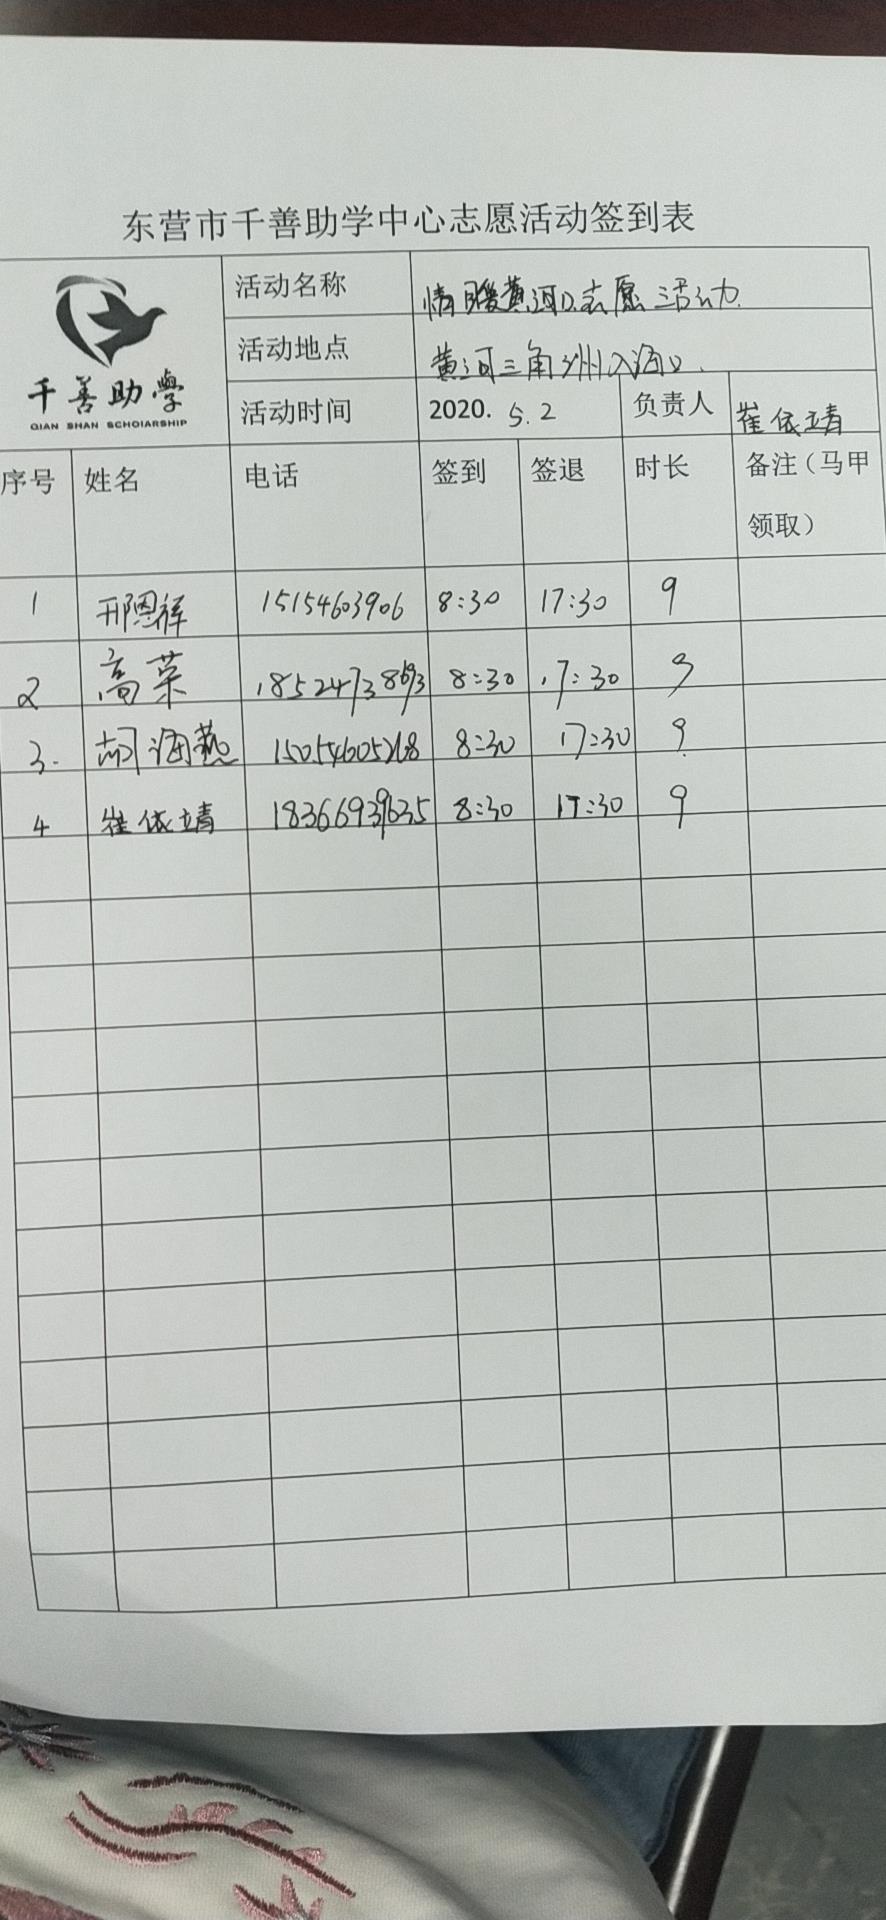 东营市千善助学中心志愿活动签到表
千善助學
QIAN SHAN SCHOIARSHIP
活动名称 情暖黄河口志愿活动
活动地点 黄河三角洲入海口
活动时间 2020. 5.2 负责人 崔依靖
序号 姓名 电话 签到 签退 时长 备注（马甲领取）
1 邢恩祥 15154603906 8:30 17:30 9
2 高荣 8:30 17:30 9
3. 胡海燕 15054605268 8:30 17:30 9
4 崔依靖 18366939635 8:30 17:30 9